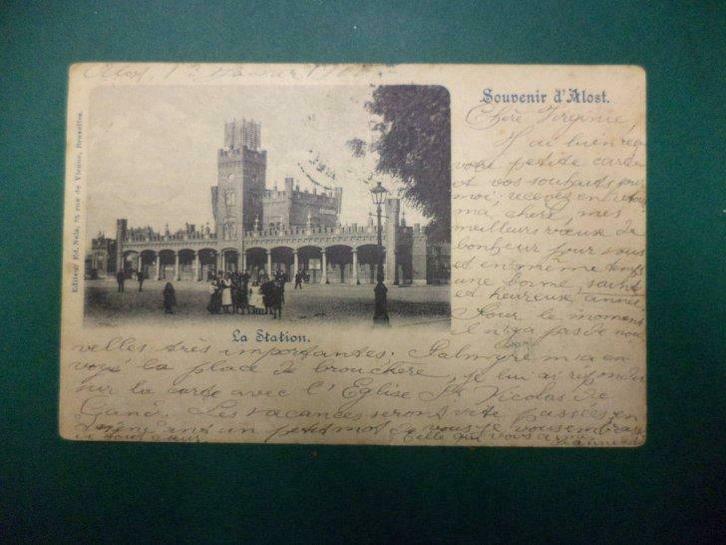 Souvenir d'Alost.
Chère Virginie,
J'ai bien reçu
votre petite carte
et vos souhaits pour
moi; recevez en retour
ma chère, mes
meilleurs voeux de
bonheur pour vous
et en même temps
une bonne, sainte
et heureuse année
Pour le moment
il n'y a pas de nou
La Station.
velles très importantes. Palmyre m'a en
voyé la place de brouckère, je lui ai répondu
sur la carte avec l'Eglise St Nicolas de
Gand. Les vacances seront vite passées en
un petit mot de vous je vous embrasse
Celle qui vous aime
Editeur Ed. Nels, rue de Vienne, Bruxelles.